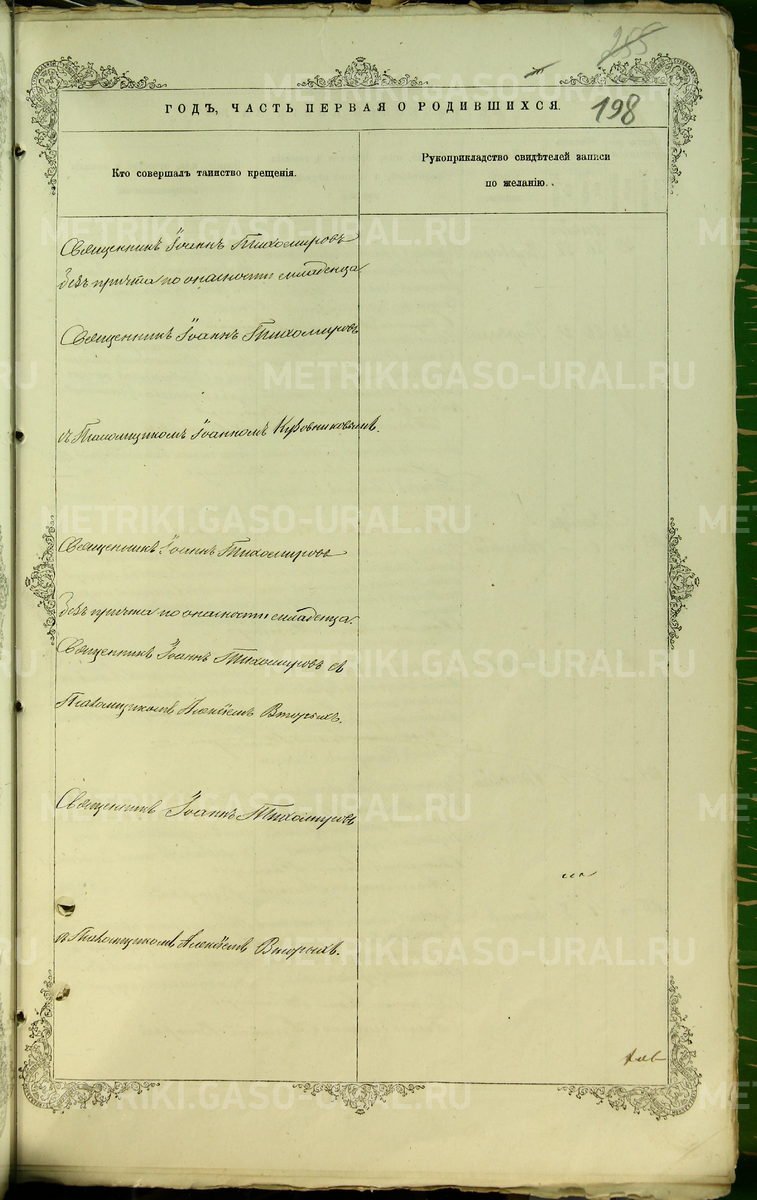 255
ГОДЪ, ЧАСТЬ ПЕРВАЯ О РОДИВШИХСЯ.
198
Кто совершалъ таинство крещенія.
Рукоприкладство свидѣтелей записи
по желанію.
Священникъ Іоаннъ Тихомировъ
безъ причта по опасности младенца
Священникъ Іоаннъ Тихомировъ
съ Псаломщикомъ Іоанномъ
Священникъ Іоаннъ Тихомировъ
безъ причта по опасности младенца.
Священникъ Іоаннъ Тихомировъ съ
Псаломщикомъ Алексѣемъ Вторыхъ.
Священникъ Іоаннъ Тихомировъ
съ Псаломщикомъ Алексѣемъ Вторыхъ.
METRIKI.GASO-URAL.RU